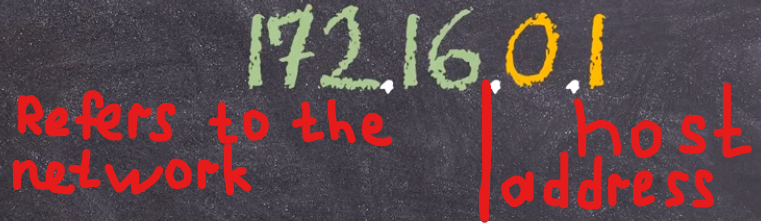 172.16.0.1
Refers to the network
host address